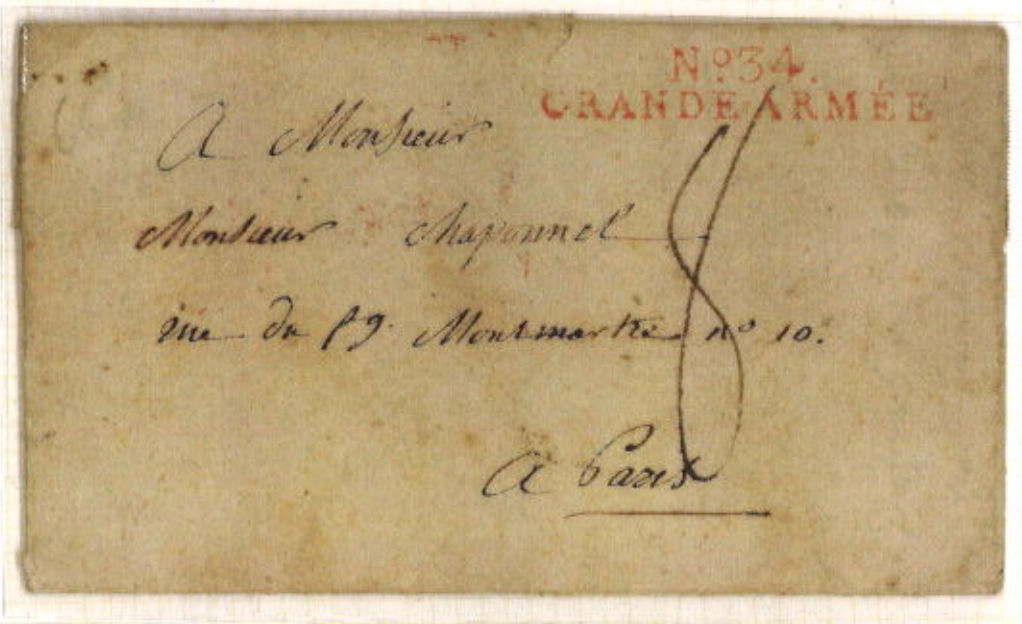 No. 34.
GRANDE ARMÉE
A Monsieur
Monsieur Chaponnel
rue du fg. Montmartre no 10.
8
A Paris